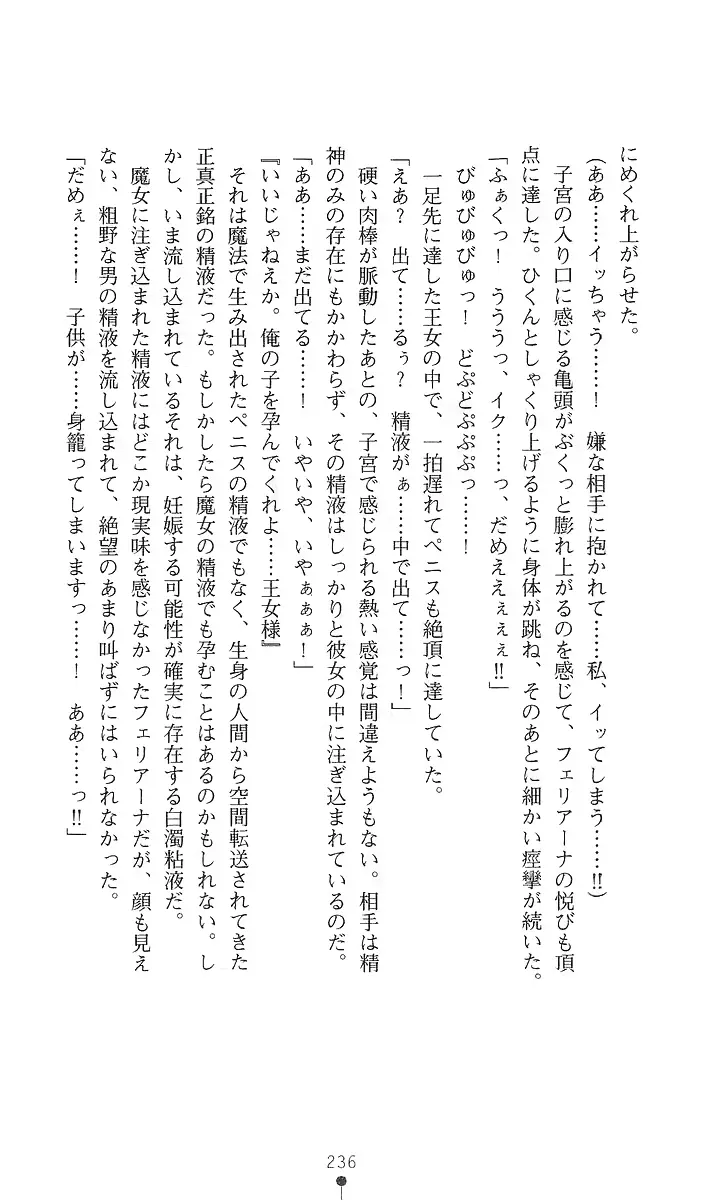 にめくれ上がらせた。
(ああ……イッちゃう……！　嫌な相手に抱かれて……私、イッてしまう……‼)
　子宮の入り口に感じる亀頭がぷくっと膨れ上がるのを感じて、フェリアーナの悦びも頂
点に達した。ひくんとしゃくり上げるように身体が跳ね、そのあとに細かい痙攣が続いた。
「ふぁくっ！　うううっ、イク……っ、だめええぇぇぇ‼」
　びゅびゅびゅっ！　どぷどぷぷぷっ……！
　一足先に達した王女の中で、一拍遅れてペニスも絶頂に達していた。
「えあ？　出て……るぅ？　精液がぁ……中で出て……っ！」
　硬い肉棒が脈動したあとの、子宮で感じられる熱い感覚は間違えようもない。相手は精
神のみの存在にもかかわらず、その精液はしっかりと彼女の中に注ぎ込まれているのだ。
「ああ……まだ出てる……！　いやいや、いやぁぁぁ！」
『いいじゃねえか。俺の子を孕んでくれよ……王女様』
　それは魔法で生み出されたペニスの精液でもなく、生身の人間から空間転送されてきた
正真正銘の精液だった。もしかしたら魔女の精液でも孕むことはあるのかもしれない。し
かし、いま流し込まれているそれは、妊娠する可能性が確実に存在する白濁粘液だ。
　魔女に注ぎ込まれた精液にはどこか現実味を感じなかったフェリアーナだが、顔も見え
ない、粗野な男の精液を流し込まれて、絶望のあまり叫ばずにはいられなかった。
「だめぇ……！　子供が……身籠ってしまいますっ……！　ああ……っ‼」
236